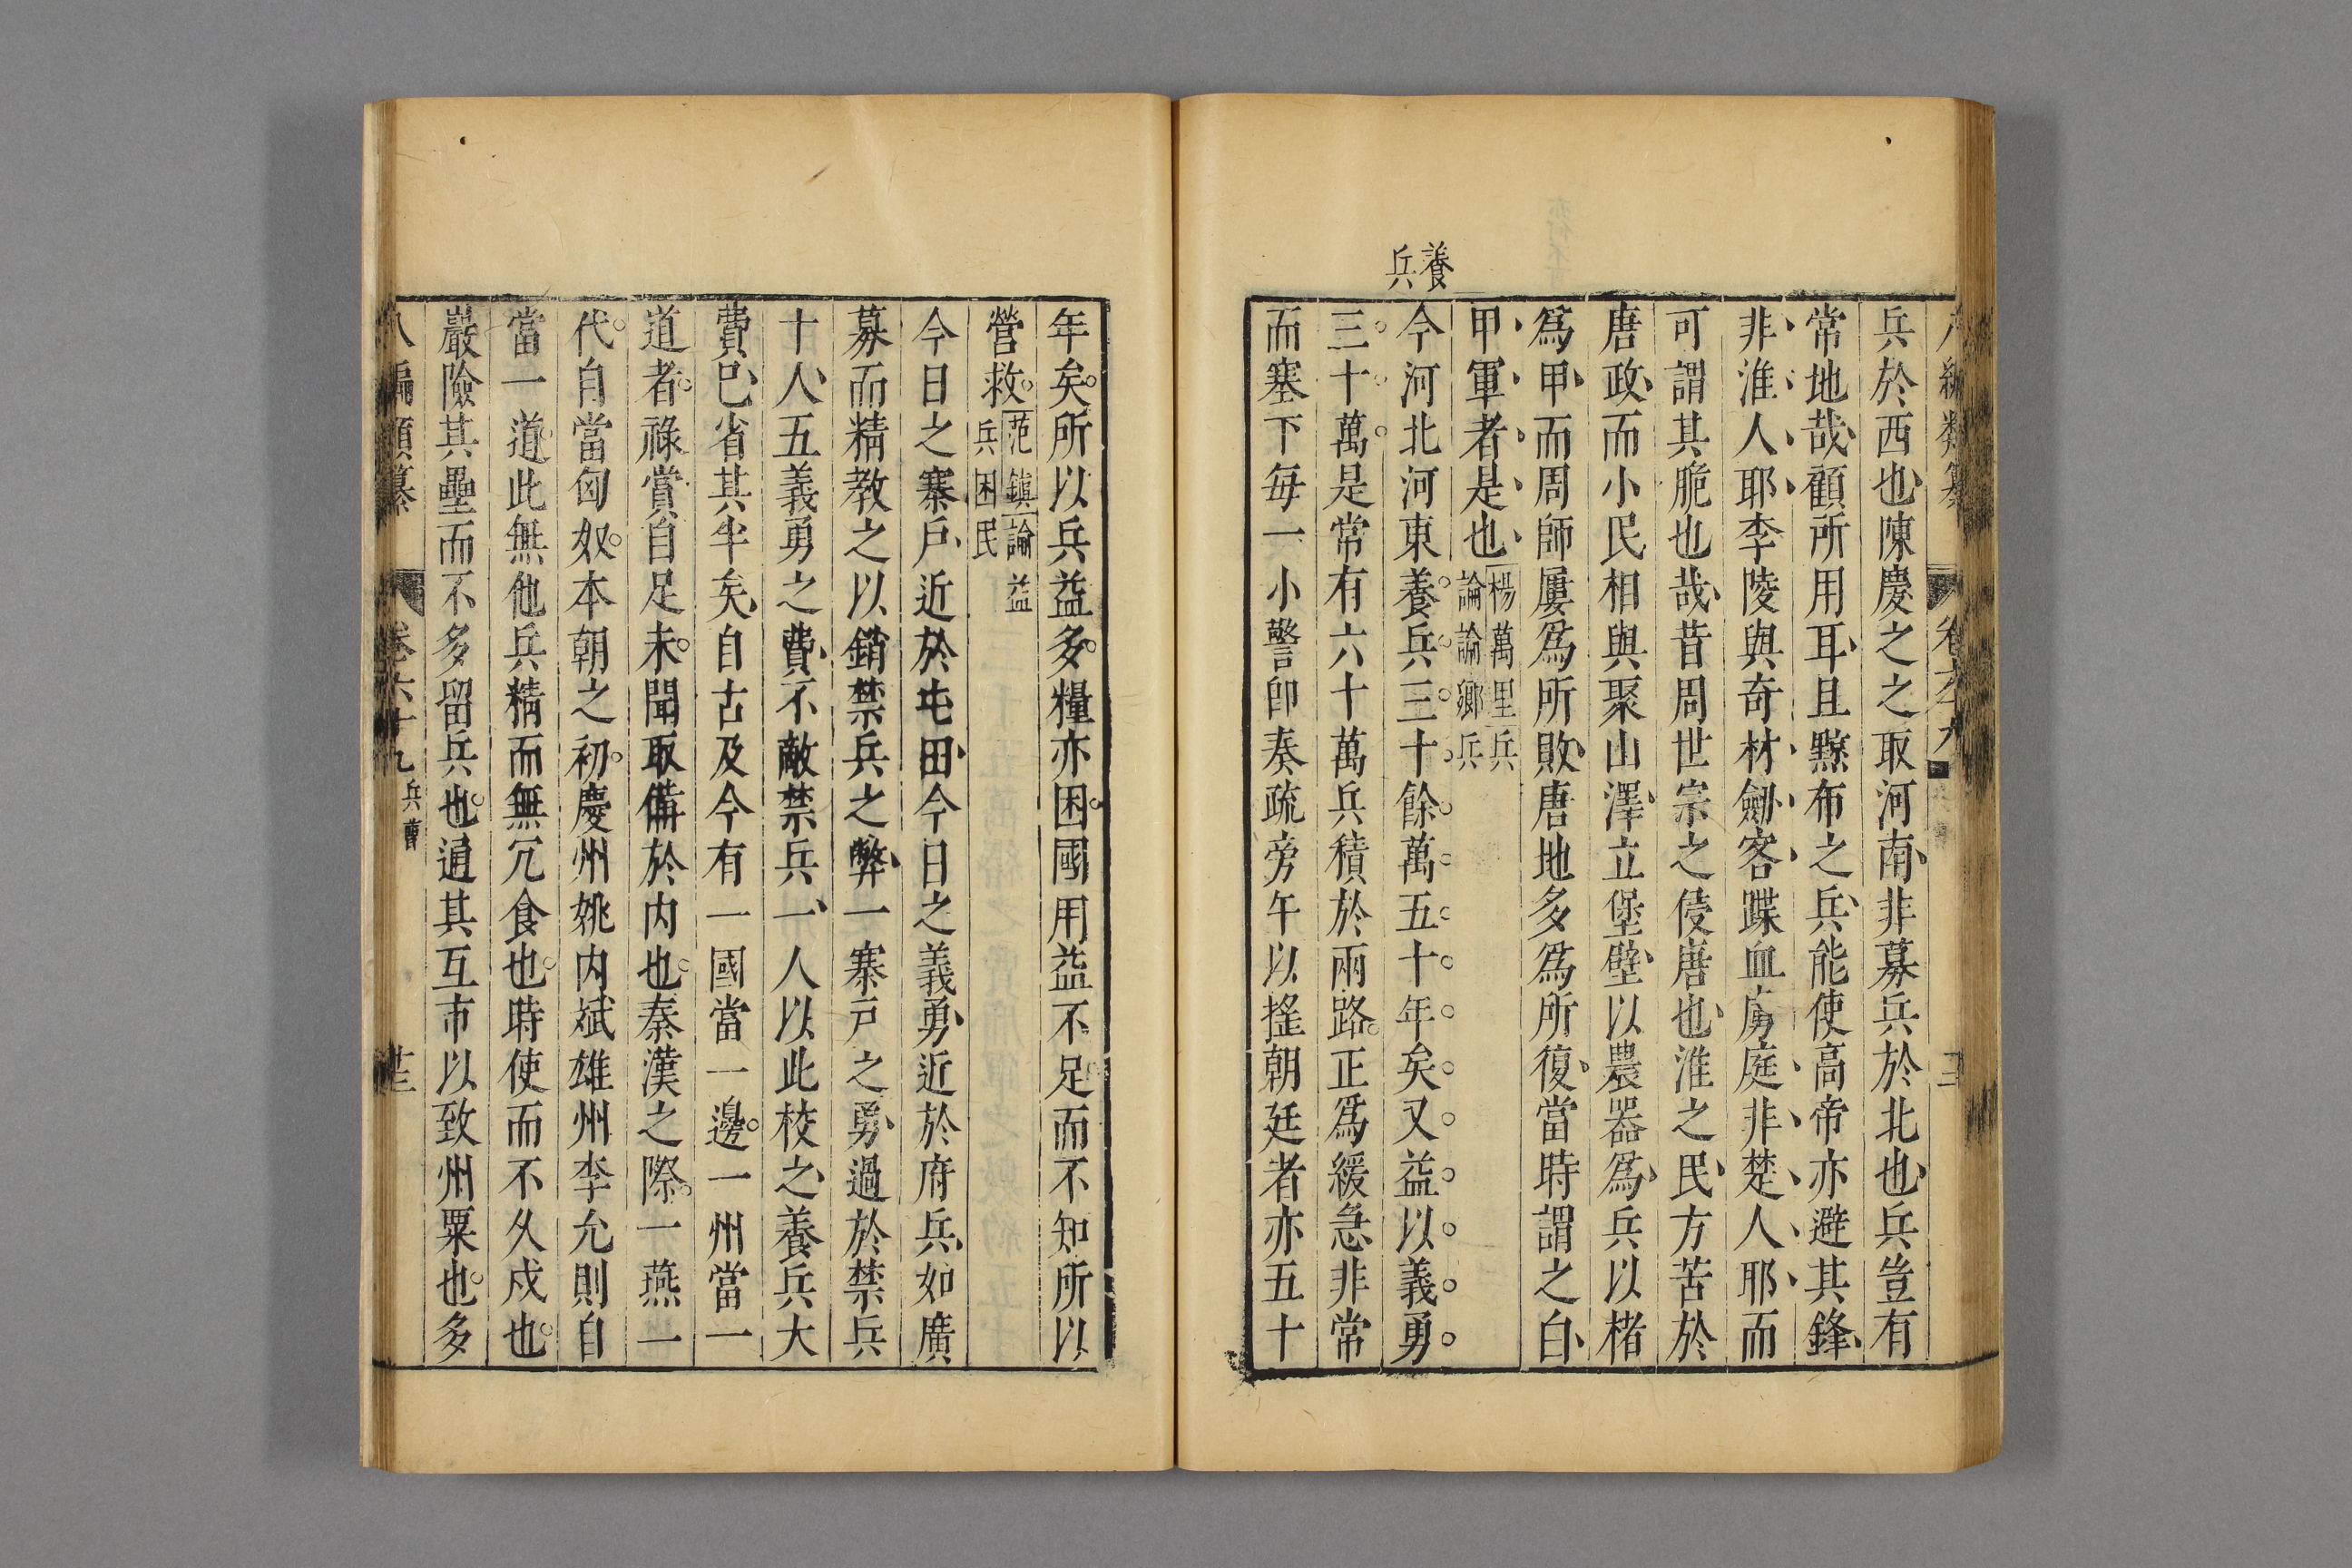 兵於西也陳慶之之取河南非募兵於北也兵豈有
常地哉顧所用耳且黥布之兵能使高帝亦避其鋒
非淮人耶李陵與奇材劒客蹀血虜庭非楚人耶而
可謂其脆也哉昔周世宗之侵唐也淮之民方苦於
唐政而小民相與聚山澤立堡壁以農器爲兵以楮
爲甲而周師屢爲所敗唐地多爲所復當時謂之白
甲軍者是也楊萬里兵
論論鄉兵
養
兵
今河北河東養兵三十餘萬五十年矣又益以義勇
三十萬是常有六十萬兵積於兩路正爲緩急非常
而塞下每一小警卽奏疏旁午以搖朝廷者亦五十
年矣所以兵益多糧亦困國用益不足而不知所以
營救范鎮論益
兵困民
今日之寨戶近於屯田今日之義勇近於府兵如廣
募而精教之以銷禁兵之弊一寨戸之勇過於禁兵
十人五義勇之費不敵禁兵一人以此校之養兵大
費已省其半矣自古及今有一國當一邊一州當一
道者祿賞自足未聞取備於内也秦漢之際一燕一
代自當匈奴本朝之初慶州姚内斌雄州李允則自
當一道此無他兵精而無冗食也時使而不久戍也
嚴險其壘而不多留兵也通其互市以致州粟也多
八編類纂 卷六十九 兵曹 廿三